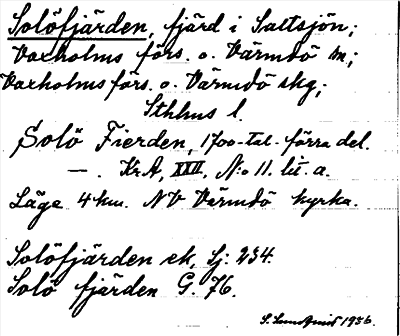 Solöfjärden, fjärd i Saltsjön;
Vaxholms förs. o. Värmdö sn;
Vaxholms förs. o. Värmdö skg;
Sthlms l.
Solö Fierden, 1700-tal. förra del.
— . KrA, XXII, N:o 11. lit. a.
Läge 4 km. NV Värmdö kyrka.
Solöfjärden ek, Sj: 234.
Solö fjärden G. 76.
S. Lundqvist 1936.